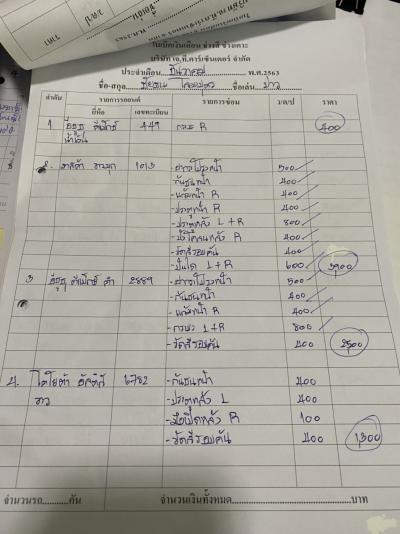 ใบเบิกเงินเดือน ช่างสี ช่างเคาะ
บริษัท เจ.ที.คาร์เซ็นเตอร์ จำกัด
ประจำเดือน ธันวาคม พ.ศ.2563
ชื่อ-สกุล ชื่อเล่น ขาว
ลำดับ รายการรถยนต์ รายการซ่อม ว/ด/ป ราคา
ยี่ห้อ เลขทะเบียน
1 อีซูซุ ดีแม็กซ์ 449 กระบะ R 400
น้ำเงิน
2. 1013 - ฝากระโปรงหน้า 500
- กันชนหน้า 400
- แก้มหน้า R 400
- ประตูหน้า R 400
- ประตูหลัง L+R 800
- บังโคลนหลัง R 400
- ขัดสีรอบคัน 400
- บันได L+R 600 3900
3 อีซูซุ ดีแม็กซ์ ดำ 2889 - ฝากระโปรงหน้า 500
- กันชนหน้า 400
- แก้มหน้า R 400
- กระบะ L+R 800
- ขัดสีรอบคัน 400 2500
4. โตโยต้า อัลติส 6782 - กันชนหน้า 400
ขาว - ประตูหลัง L 400
- มือเปิดหลัง R 100
- ขัดสีรอบคัน 400 1,300
จำนวนรถ คัน จำนวนเงินทั้งหมด บาท